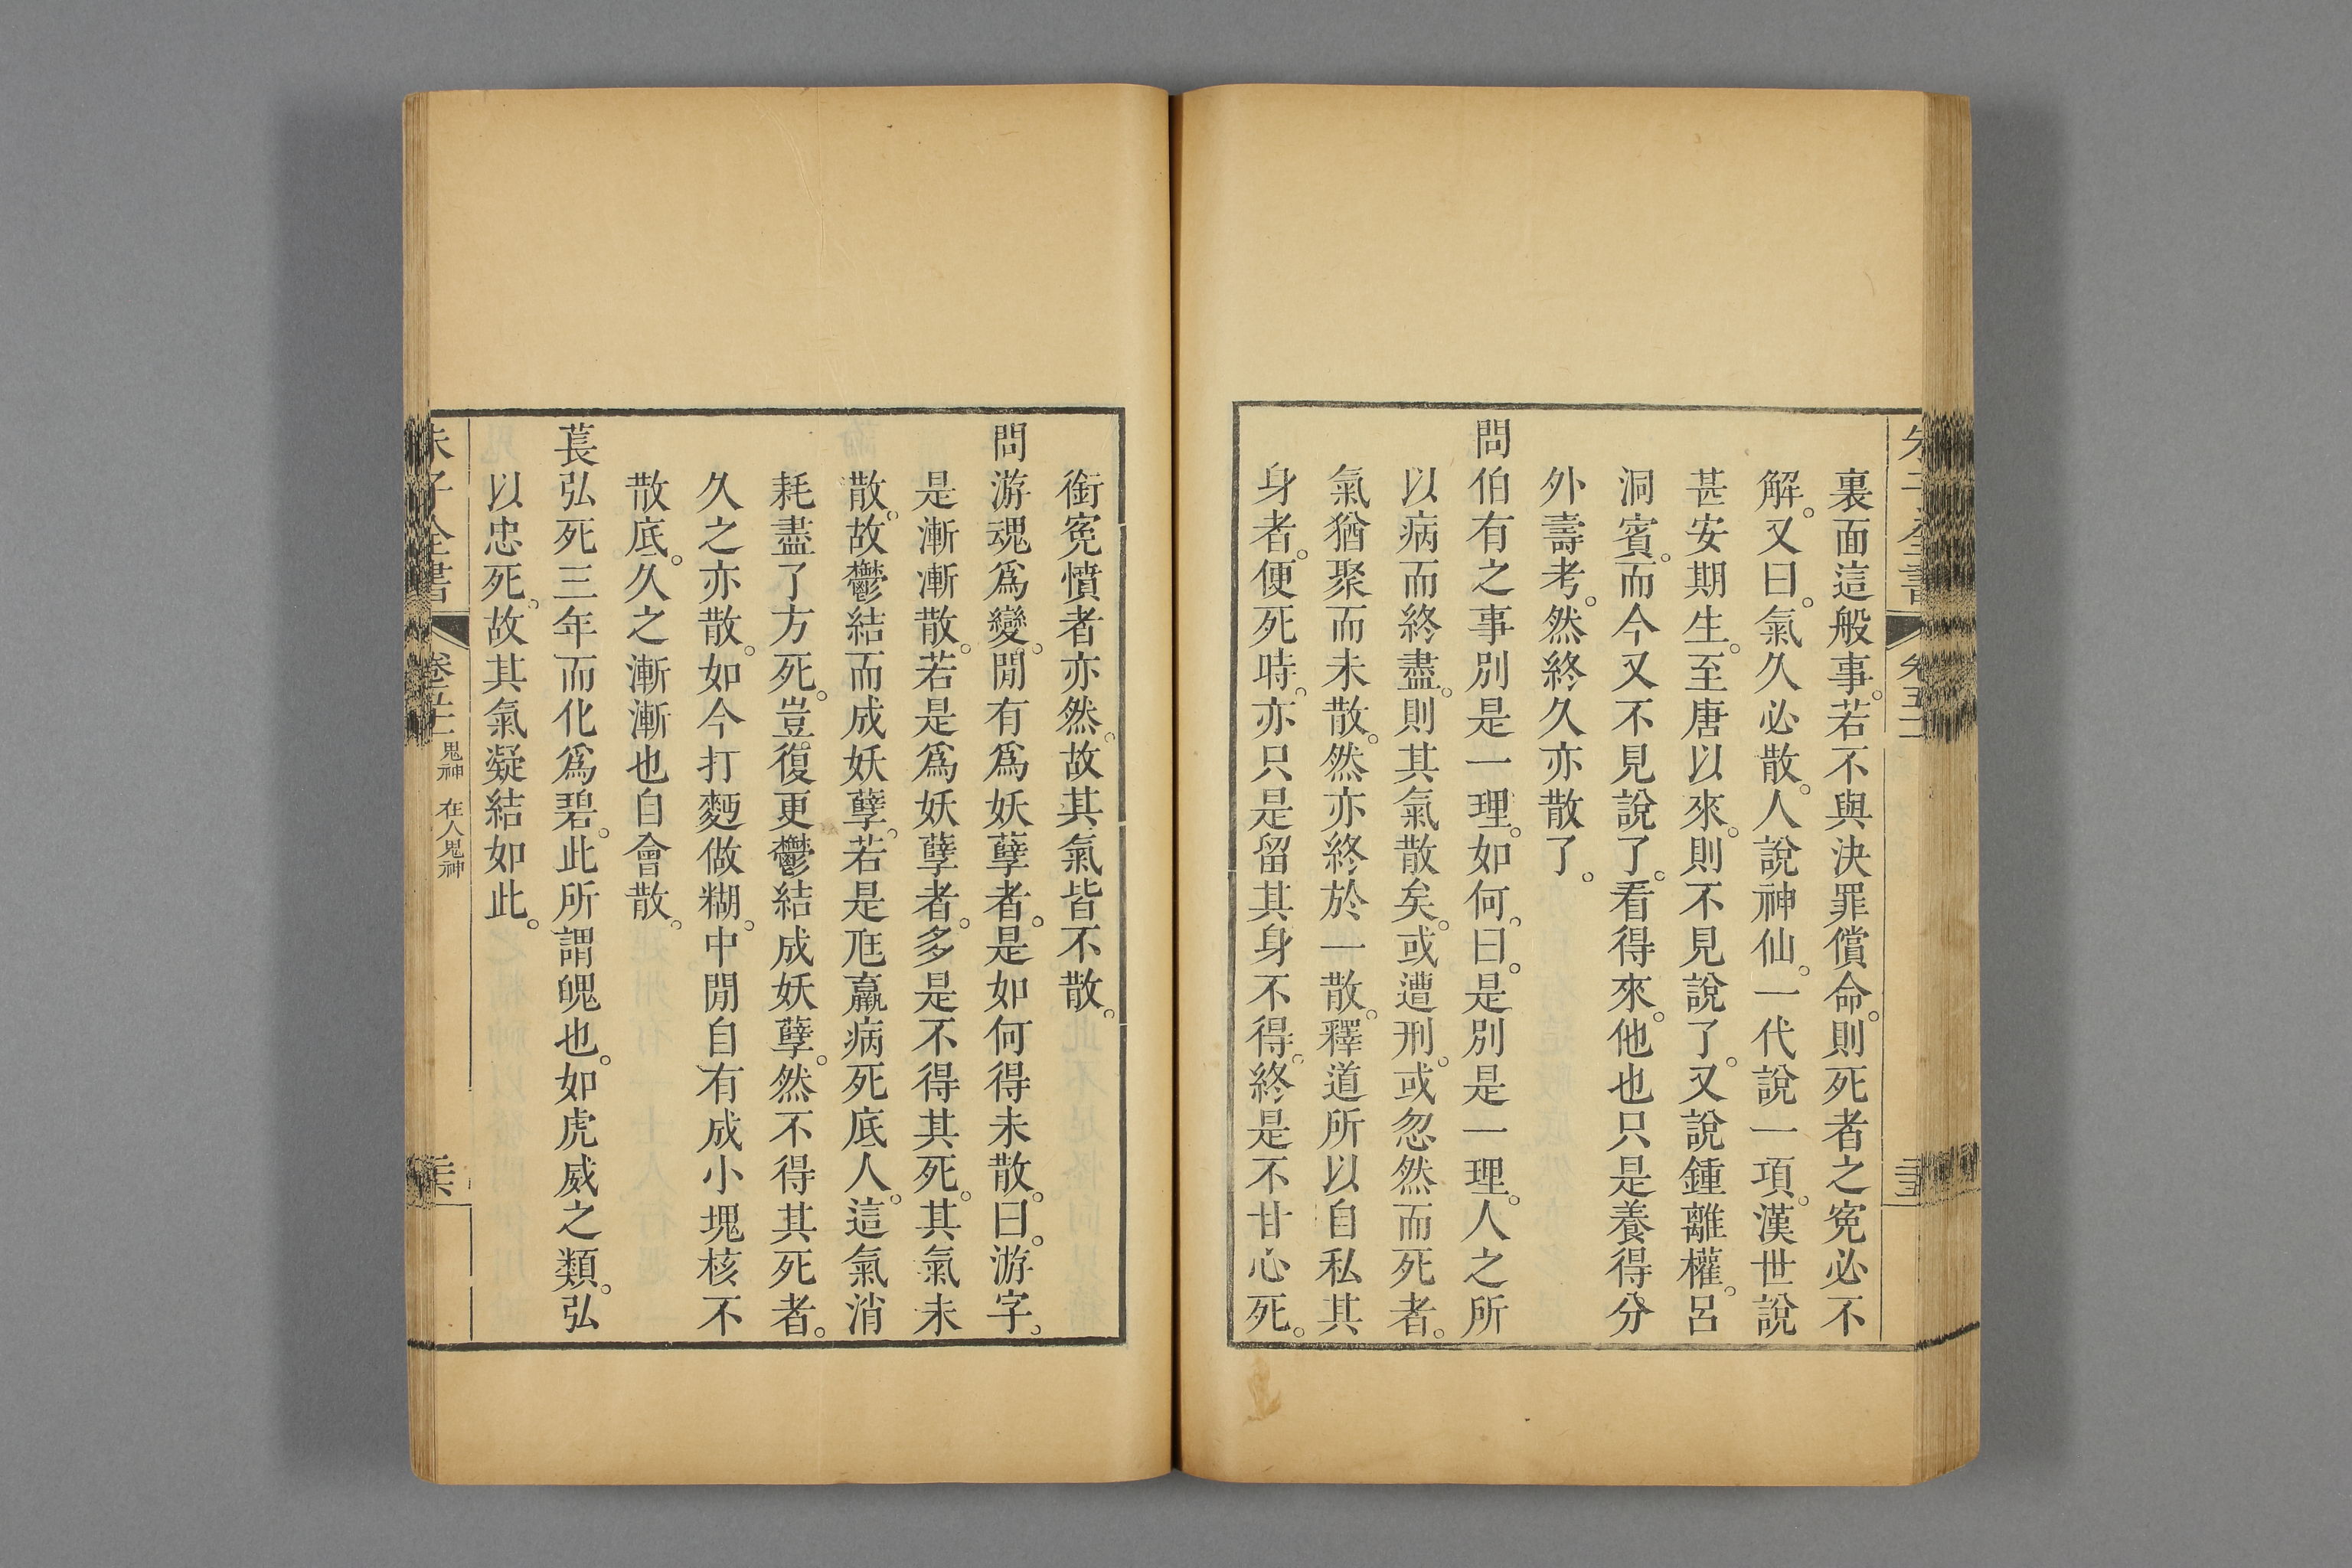 裏面這般事。若不與決罪償命。則死者之寃必不
解。又曰。氣久必散。人說神仙。一代說一項。漢世說
甚安期生。至唐以來。則不見說了。又說鍾離權。呂
洞賓。而今又不見說了。看得來。他也只是養得分
外壽考。然終久亦散了。
問伯有之事別是一理。如何。曰。是別是一理。人之所
以病而終盡。則其氣散矣。或遭刑。或忽然而死者。
氣猶聚而未散。然亦終於一散。釋道所以自私其
身者。便死時。亦只是留其身不得。終是不甘心死。
銜寃憤者亦然。故其氣皆不散。
問游魂爲變。閒有爲妖孽者。是如何得未散。曰。游字。
是漸漸散。若是爲妖孽者。多是不得其死。其氣未
散。故鬱結而成妖孽。若是尫羸病死底人。這氣消
耗盡了方死。豈復更鬱結成妖孽。然不得其死者。
久之亦散。如今打麪做糊。中閒自有成小塊核不
散底。久之漸漸也自會散。
萇弘死三年而化爲碧。此所謂魄也。如虎威之類。弘
以忠死。故其氣凝結如此。
朱子全書 卷五十一 鬼神 在人鬼神